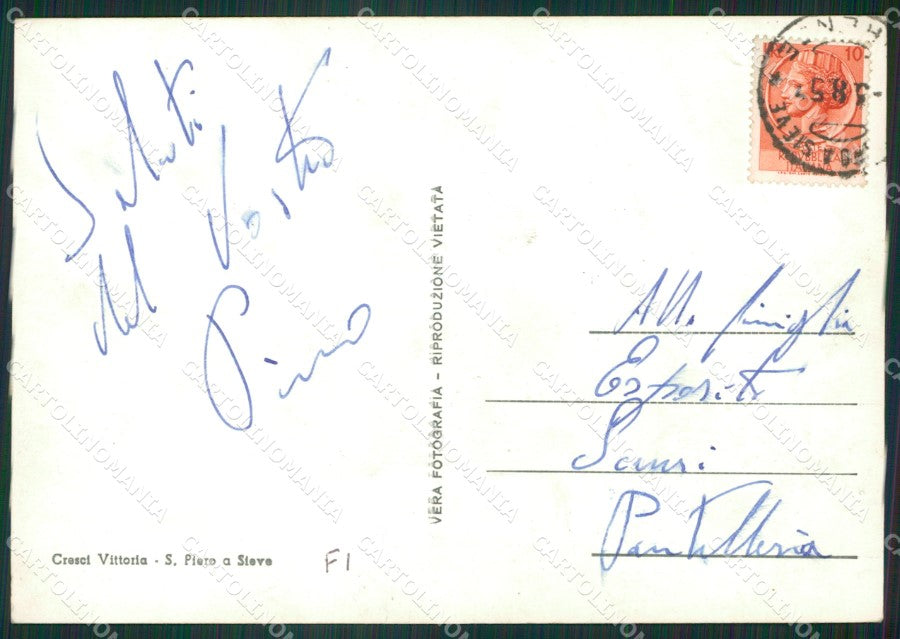 Saluti
dal Vostro
Pino
VERA FOTOGRAFIA - RIPRODUZIONE VIETATA
Alla famiglia
Esposito
Sauri
Pantelleria
Cresci Vittoria - S. Piero a Sieve
F1
10
SIEVE
ITALIANA
CARTOLINOMANIA